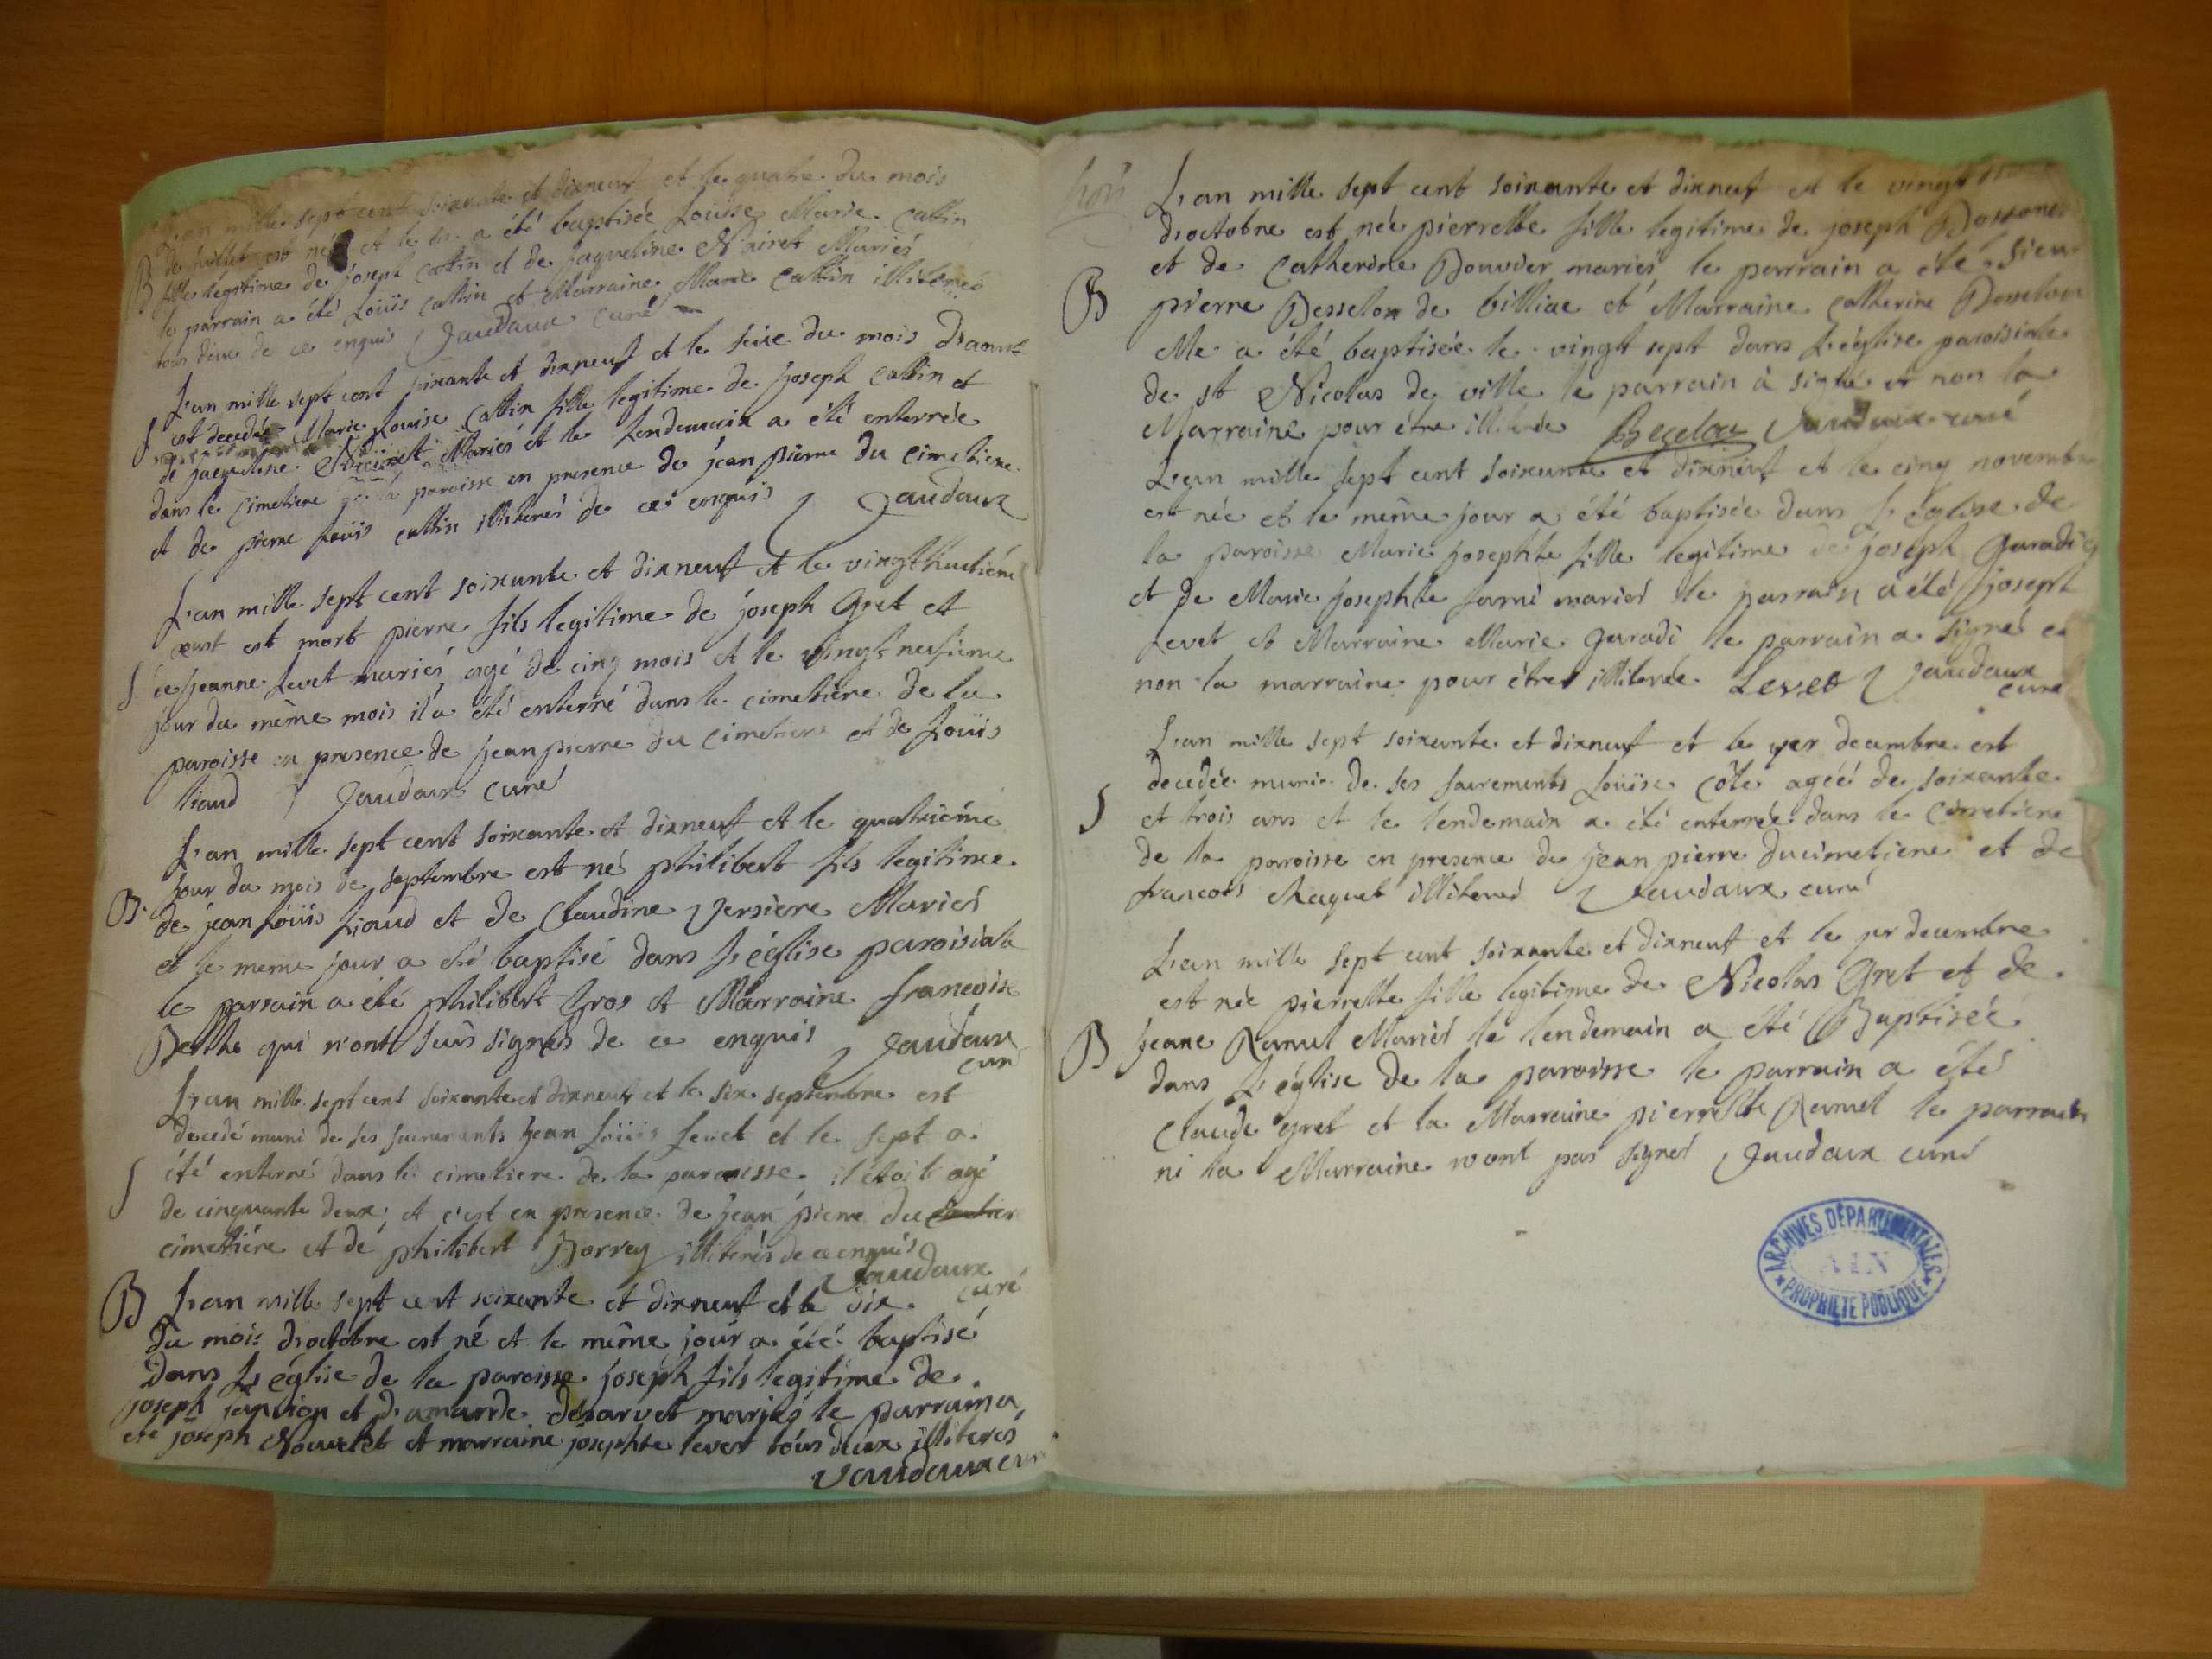 L'an mille sept cent soixante et dixneuf et le quatre du mois
de juillet est née et le dit a été baptisée Louise Marie Cattin
B fille legitime de joseph Cattin et de jaqueline Nairet Mariés
le parrain a été Loüis Cattin et Marraine Marie Cattin illiterés
tous deux de ce enquis Vaudaux curé
L'an mille sept cent soixante et dixneuf et le seize du mois d'aoust
S est decedée Marie Louise Cattin fille legitime de Joseph Cattin et
de jaqueline Nairet Mariés et le lendemain a été enterrée
dans le Cimetiere de la paroisse en presence de jean pierre du Cimetiere
et de pierre Loüis Cattin illiterés de ce enquis Vaudaux
L'an mille sept cent soixante et dixneuf et le vingthuitiéme
aoust est mort pierre fils legitime de joseph Gret et
S de jeanne Levet mariés agé de cinq mois et le vingt neufieme
jour du même mois il a été enterré dans le cimetiére de la
paroisse en presence de Jean pierre du Cimetiere et de Loüis
liaud Vaudaux curé
L'an mille sept cent soixante et dixneuf et le quatriéme
jour du mois de septembre est né philibert fils legitime
B. de jean Loüis Liaud et de Claudine Versiere Mariés
et le meme jour a été baptisé dans L'église paroisiale
le parrain a eté philibert Gros et Marraine francoise
Berthe qui n'ont seus signés de ce enquis Vaudaux
curé
L'an mille sept cent soixante et dixneuf et le six septembre est
decedé muni de ses sacrements Jean Loüis Levet et le sept a
S été enterré dans le cimetiere de la paroisse il étoit agé
de cinquante deux et c'est en presence de jean pierre du
cimetiére et de philibert Borrey illiterés de ce enquis
Vaudaux
curé
B L'an mille sept cent soixante et dixneuf et le dix
du mois d'octobre est né et le même jour a été baptisé
dans L'église de la paroisse joseph fils legitime de
joseph janvion et d'amande desarvet mariés le parrain a
été joseph Nouvelet et marraine josephte levet tous deux illiterés
Vaudaux curé
L'an mille sept cent soixante et dixneuf et le vingt
d'octobre est née pierrette fille legitime de joseph
et de Catherine Bouvier mariés le parrain a été Sieur
B pierre Besselon de billiac et Marraine Catherine Besselon
elle a été baptisée le vingt sept dans L'église paroisiale
de st Nicolas de ville le parrain a signé et non la
Marraine pour étre illiterée Becelon Vaudaux curé
L'an mille sept cent soixante et dixneuf et le cinq novembre
est née et le même jour a été baptisée dans L'église de
la paroisse Marie josephte fille legitime de joseph Garadi
et de Marie josephte Larni mariés le parrain a été joseph
Levet et Marraine Marie Garadi le parrain a signé et
non la marraine pour étre illiterée Levet Vaudaux
curé
L'an mille sept soixante et dixneuf et le per decembre est
decedée munie de ses sacrements Loüise Côte agéé de soixante
S et trois ans et le lendemain a été enterrée dans le Cimetiere
de la paroisse en presence de jean pierre ducimetiere et de
francois Chaquet illiterés Vaudaux curé
L'an mille sept cent soixante et dixneuf et le per decembre
est née pierrette fille legitime de Nicolas Gret et de
B Jeane Ramel Mariés le lendemain a été Baptisée
dans L'église de la paroisse le parrain a été
Claude gret et la Marraine pierrette Ramel le parrain
ni la Marraine n'ont pas signés Vaudaux curé
ARCHIVES DÉPARTEMENTALES
AIN
PROPRIÉTÉ PUBLIQUE